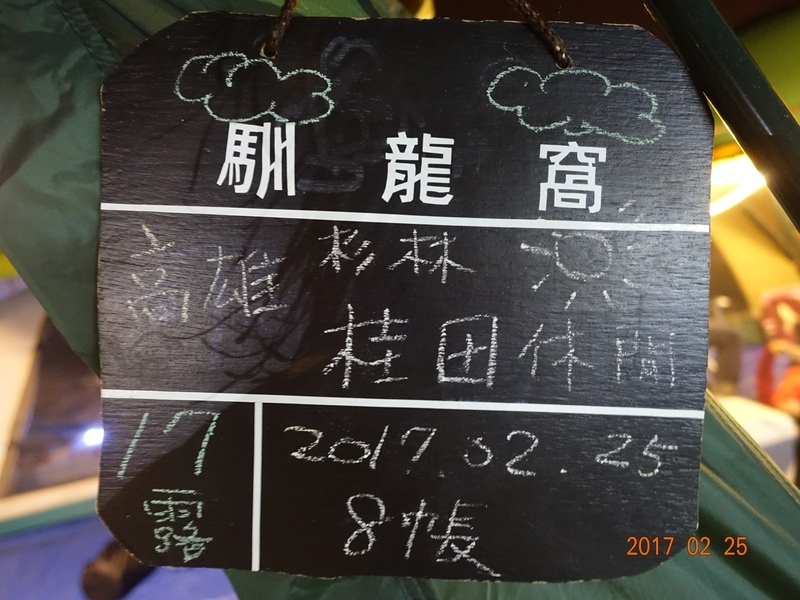 馴龍窩
高雄 杉林
桂田休閒
17
露
2017.02.25
8帳
2017 02 25